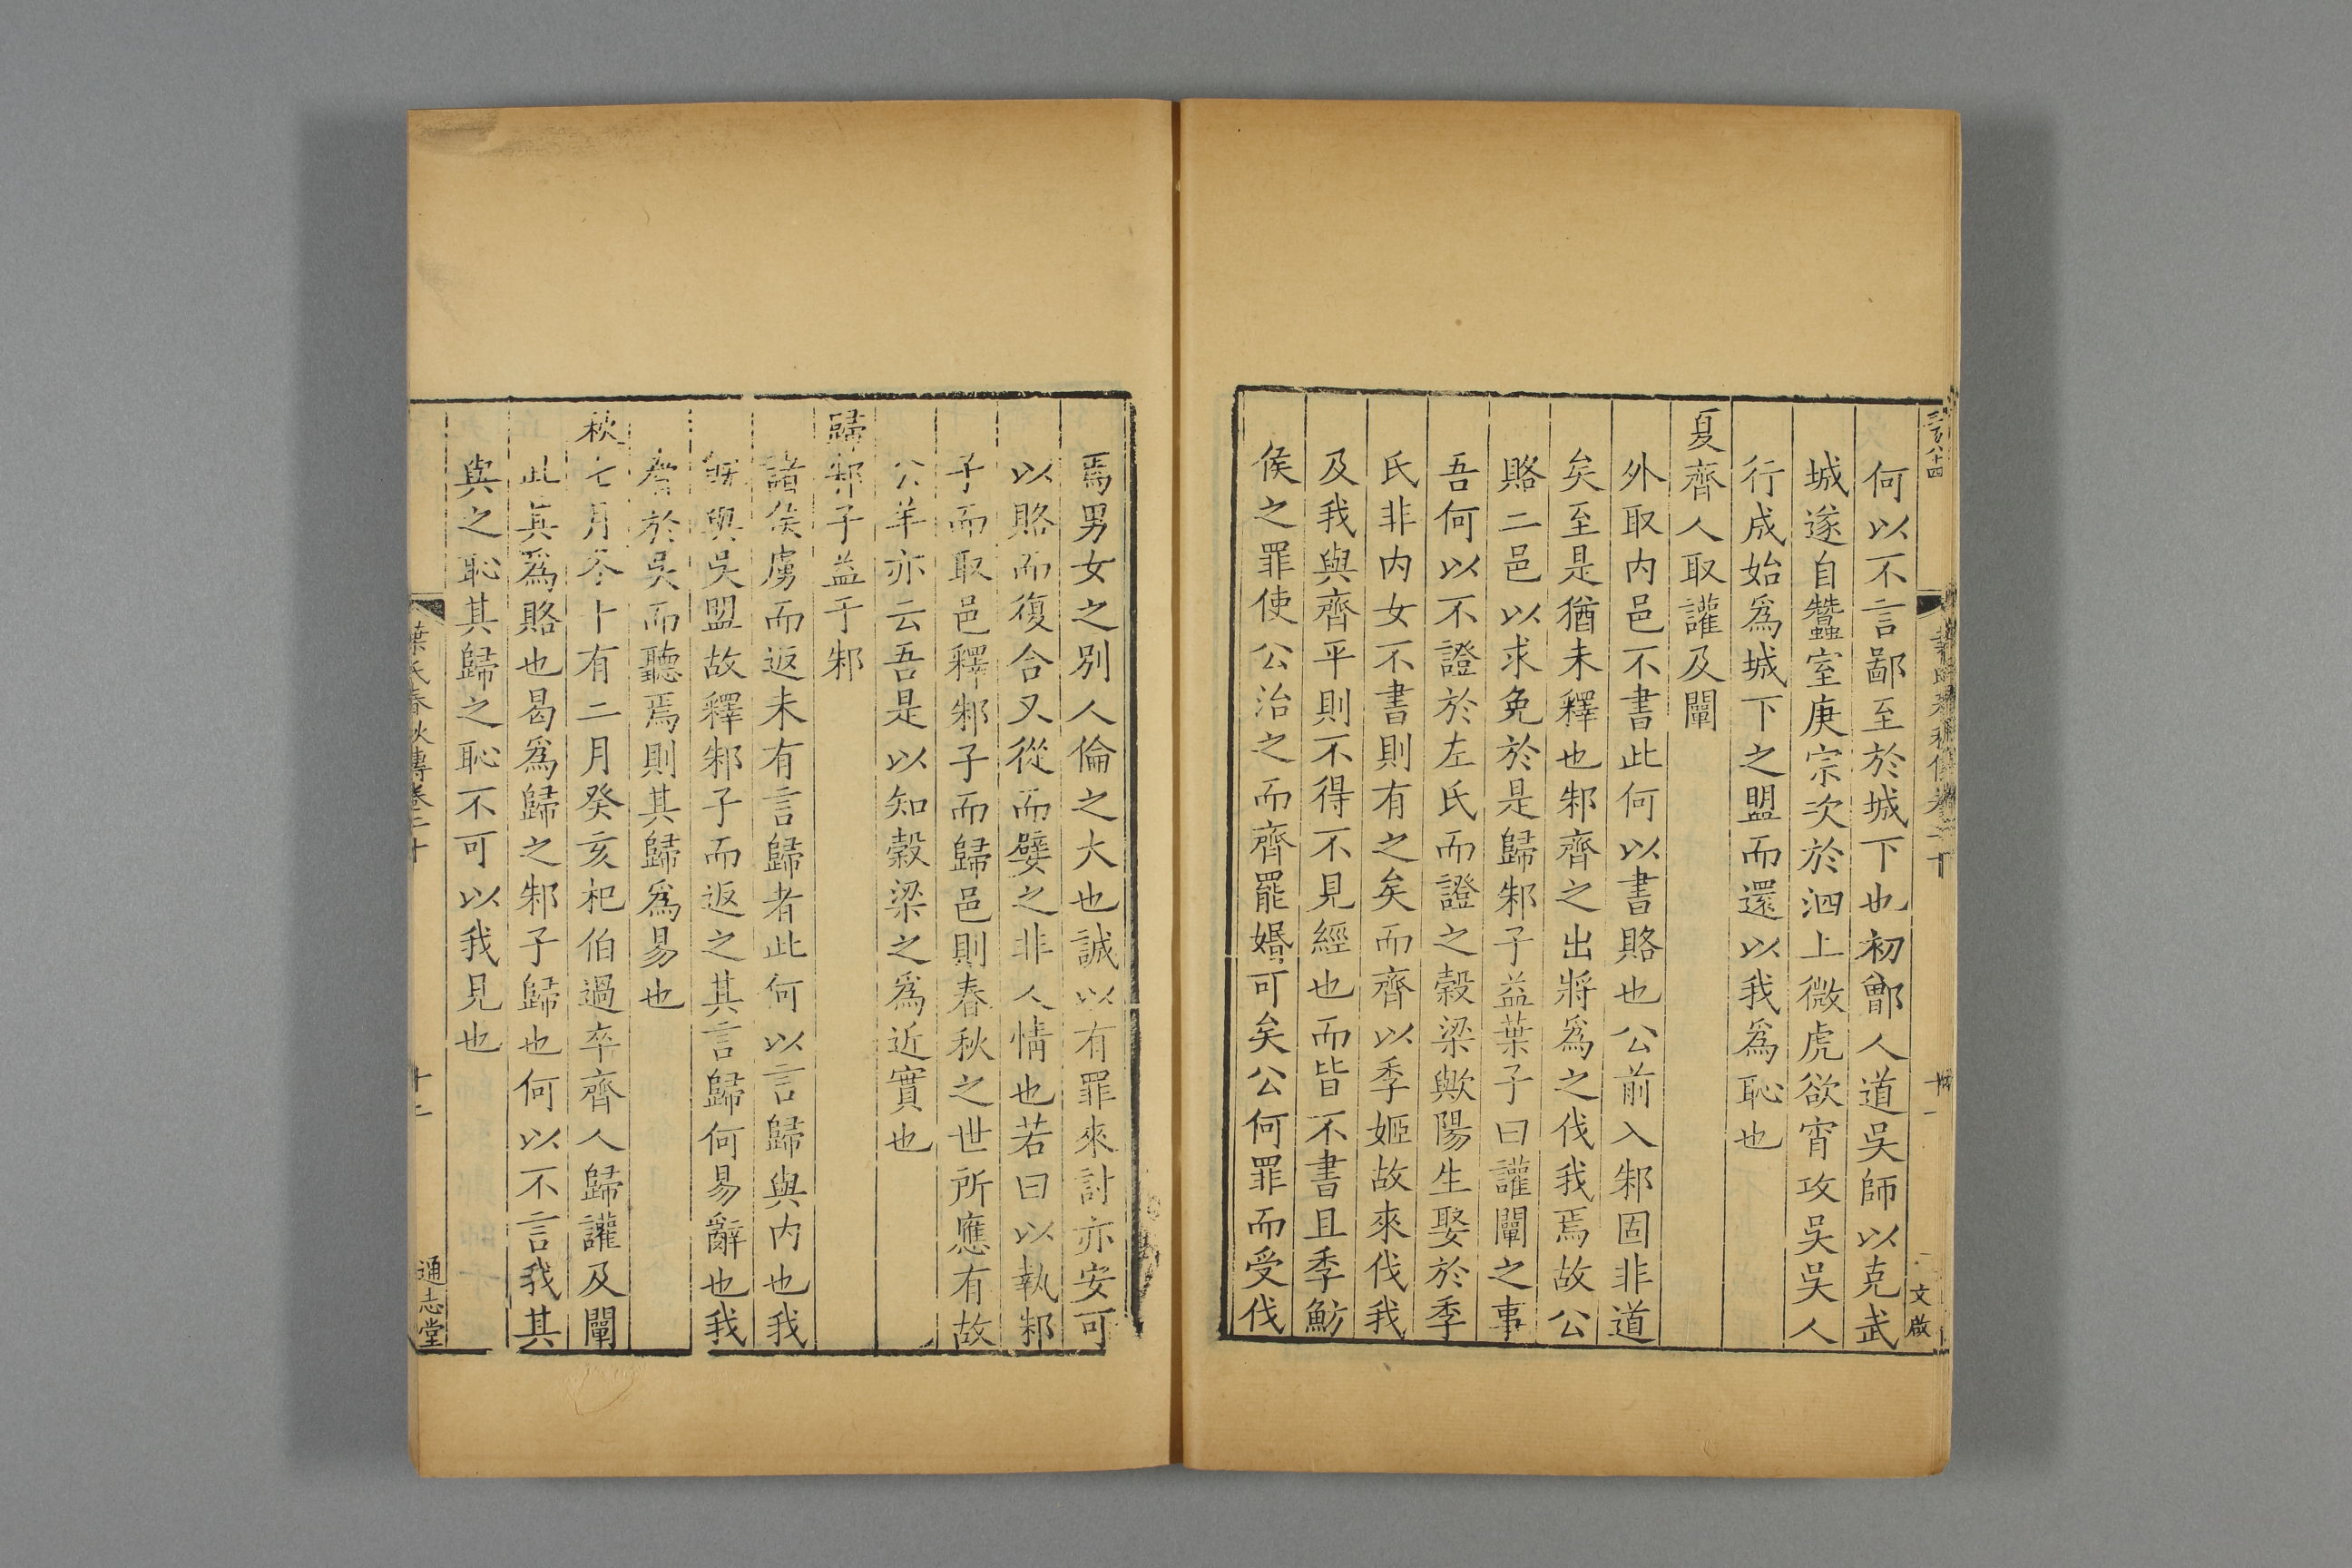 三百八十四
文啟
何以不言鄙至於城下也初鄫人道吳師以克武
城遂自蠶室庚宗次於泗上微虎欲宵攻吳吳人
行成始爲城下之盟而還以我爲恥也
夏齊人取讙及闡
外取內邑不書此何以書賂也公前入邾固非道
矣至是猶未釋也邾齊之出將爲之伐我焉故公
賂二邑以求免於是歸邾子益葉子曰讙闡之事
吾何以不證於左氏而證之穀梁歟陽生娶於季
氏非內女不書則有之矣而齊以季姬故來伐我
及我與齊平則不得不見經也而皆不書且季魴
侯之罪使公治之而齊罷婚可矣公何罪而受伐
焉男女之別人倫之大也誠以有罪來討亦安可
以賂而復合又從而嬖之非人情也若曰以執邾
子而取邑釋邾子而歸邑則春秋之世所應有故
公羊亦云吾是以知穀梁之爲近實也
歸邾子益于邾
諸侯虜而返未有言歸者此何以言歸與內也我
旣與吳盟故釋邾子而返之其言歸何易辭也我
詹於吳而聽焉則其歸爲易也
秋七月冬十有二月癸亥杞伯過卒齊人歸讙及闡
此其爲賂也曷爲歸之邾子歸也何以不言我其
與之恥其歸之恥不可以我見也
葉氏春秋傳卷二十
十二
通志堂